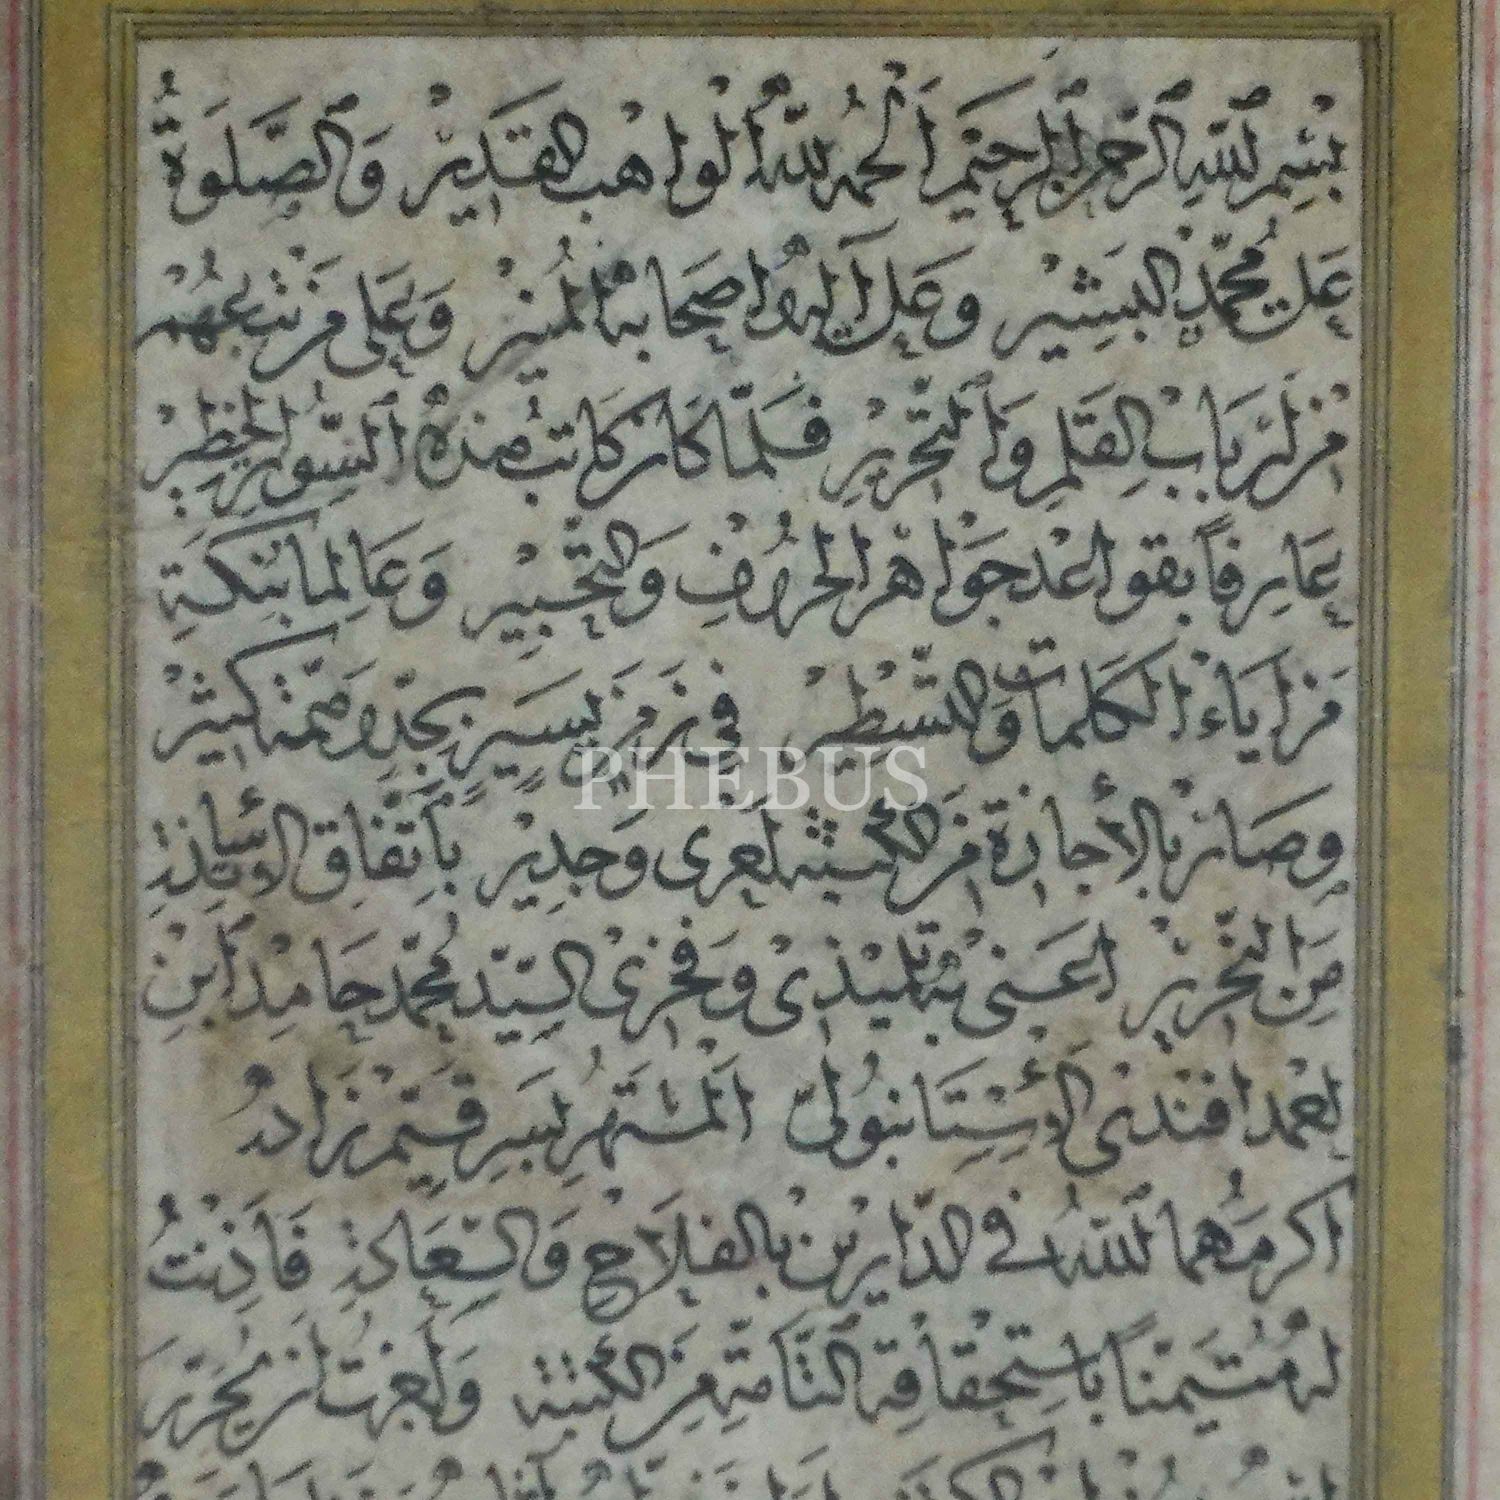 بِسْمِ اللهِ الرَّحْمٰنِ الرَّحِيْمِ اَلْحَمْدُ لِلّٰهِ الْوَاهِبِ الْقَدِيْرِ وَالصَّلٰوةُ
عَلٰى مُحَمَّدٍ الْبَشِيْرِ وَعَلٰى آلِهِ وَاَصْحَابِهِ الْمُنِيْرِ وَعَلٰى مَنْ تَبِعَهُمْ
مِنْ اَرْبَابِ الْقَلَمِ وَالتَّحْرِيْرِ فَلَمَّا كَانَ كَاتِبُ هٰذِهِ السُّطُوْرِ
عَارِفًا بِقَوَاعِدِ جَوَاهِرِ الْحُرُوْفِ وَالتَّحْبِيْرِ وَعَالِمًا بِنُكْتَةِ
مَزَايَاءِ الْكَلِمَاتِ وَالتَّسْطِيْرِ فِى زَمَنٍ يَسِيْرٍ بِجِدٍّ وَهِمَّةٍ كَثِيْرٍ
وَصَارَ بِالْأِجَازَةِ مِنَ الْكَتَبَةِ لَعَمْرِى وَجَدِيْرٍ بِاتِّفَاقِ الْاَسَاتِذَةِ
مِنَ التَّحْرِيْرِ اَعْنِى بِهِ تِلْمِيْذِى وَفَخْرِى السَّيِّدْ مُحَمَّدْ حَامِدْ اِبْنِ
افَنْدِى الْاِسْتَانْبُولِىّ اَلْمُشْتَهِرْ زَادَهْ
اَكْرَمَهُمَا اللهُ فِى الدَّارَيْنِ بِالْفَلَاحِ وَالسَّعَادَةِ فَاَذِنْتُ
لَهُ مُتَيَمِّنًا بِاسْتِحْقَاقِهِ التَّامَّةِ مِنَ الْكَتَبَةِ وَاَجَزْتُ اَنْ يُحَرِّرَ
PHEBUS